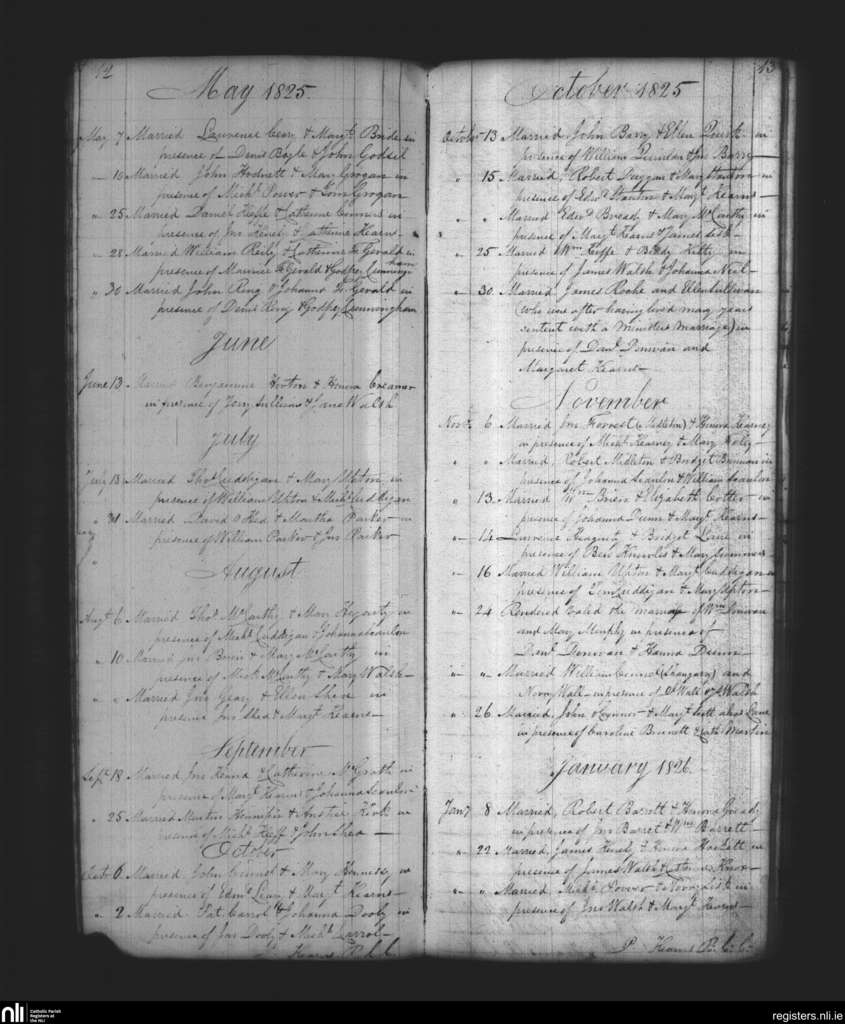 12
May 1825.
May 7 Married Laurence & Margt. Bride in
presence of Denis Bogle & John Godsil
" 10 Married John Hodnett & Mary Grogan in
presence of Michl. Power & Tom Grogan
" 25 Married Daniel Keeffe & Catherine Connors in
presence of Jno. Henesy & Catherine Kearns
" 28 Married William Reily & Catherine Fz Gerald in
presence of Maurice FzGerald & Godfrey Cunningham
" 30 Married John Ring & Johanna Fz. Gerald in
presence of Denis Ring & Godfrey Cunningham
June
June 13 Married Benjamin Horton & Honora Creamor
in presence of Tony Sullivan & Jane Walsh
July
July 13 Married Thos. Cuddigan & Mary Upton in
presence of William Upton & Michl. Cuddigan
" 31 Married David & Martha Parker in
presence of William Parker & Jno Parker
August
Augt. 6 Married Thos. McCarthy & Mary Hegarty in
presence of Michl. Cuddigan & Johanna Scanlon
" 10 Married Jno Brien & Mary McCarthy in
presence of Mick McCarthy & Mary Walsh
" " Married Jno Geary & Ellen Shea in
presence Jno Shea & Margt Kearns
September
Sept. 18 Married Jno Keana & Catherine McGrath in
presence of Margt. Kearns & Johanna Scanlon
" 25 Married Martin & Anstice Kirk in
presence of Michl. Keeff & John Shea
October
Octr. 6 Married John Connol & Mary Kennedy in
presence of Edmd. Leary & Margt. Kearns
" 2 Married Pat Carrol & Johanna Dooly in
presence of Jas Dooly & Michl. Carrol
P. Kearns P.C.C.
13
October 1825
October 13 Married John Barry & Ellen Quirk in
presence of William Quinlan & Jno Barry
" 15 Married, Robert Duggan & Mary Stanton in
presence of Edwd. Stanton & Margt. Kearns
" " Married Edwd. Bready & Mary McCarthy in
presence of Margt Kearns & James Lisk
" 25 Married Wm. Keeffe & Biddy Kelly in
presence of James Walsh & Johanna Neal
" 30 Married James Roche and Ellen Sullivan
(who were after having lived many years
content with a Ministers Marriage) in
presence of Danl. Donovan and
Margaret Kearns
November
Novr. 6 Married Jno Forrest (Midleton) & Honora Kearney
in presence of Michl. Kearney & Mary Kelly
" " Married, Robert Midleton & Bridget Brennan in
presence of Johanna Scanlon & William Scanlon
" 13 Married Wm. Brien & Elizabeth Cotter in
presence of Johanna Dunn & Margt. Kearns
" 14 Laurence Heagerty & Bridget Lane in
presence of Ben Knowles & Mary Connors
" 16 Married William Upton & Margt. Cuddigan in
presence of Tim Cuddigan & Mary Upton
" 24 Rendered valid the marriage of Wm. Donovan
and Mary Murphy in presence of
Danl. Donovan & Hanna Dunn
" " Married William Connol (Shangary) and
Nory Wall in presence of Wall & Walsh
" 26 Married, John O'Connor & Margt. Scott alias Lane
in presence of Caroline Brunett & Cath: Martin
January 1826.
Jany 8 Married, Robert Barrett & Honora Gready
in presence of Jno Barret & Wm. Barrett
" 22 Married, James Henesy & Honora Hackett in
presence of James Walsh & Catherine Knox
" " Married, Michl. Power & Nora Lisk in
presence of Jno Walsh & Margt. Kearns
P. Kearns P.C.C.
nli
Catholic Parish
Registers at
the NLI
registers.nli.ie